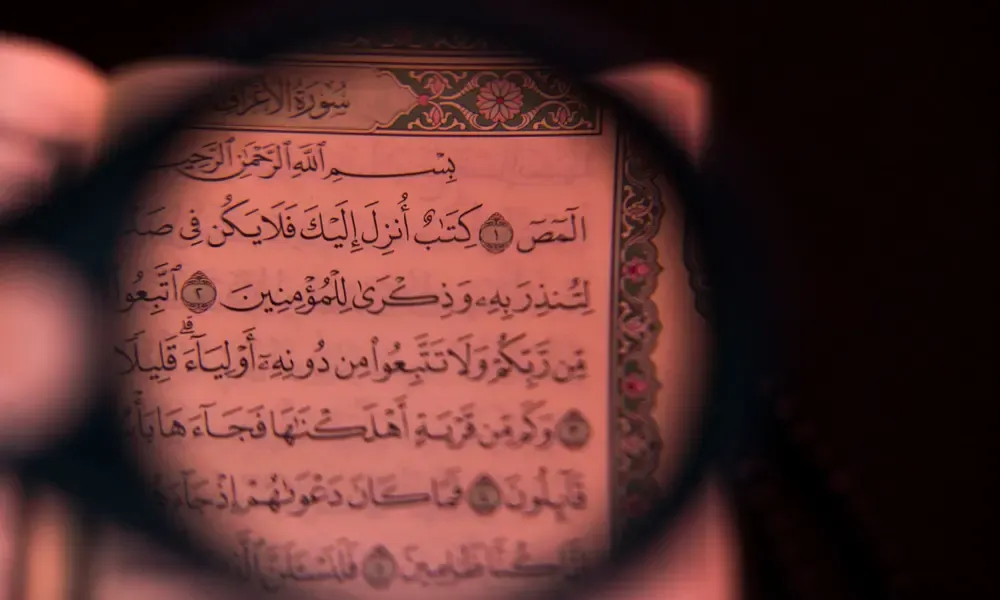 سُورَةُ الْأَعْرَافِ
بِسْمِ ٱللَّهِ ٱلرَّحْمَٰنِ ٱلرَّحِيمِ
الٓمٓصٓ ١ كِتَٰبٌ أُنزِلَ إِلَيْكَ فَلَا يَكُن فِى
لِتُنذِرَ بِهِۦ وَذِكْرَىٰ لِلْمُؤْمِنِينَ ٢ ٱتَّبِعُوا
مِّن رَّبِّكُمْ وَلَا تَتَّبِعُوا۟ مِن دُونِهِۦٓ أَوْلِيَآءَ ۗ قَلِيلًا
٣ وَكَم مِّن قَرْيَةٍ أَهْلَكْنَٰهَا فَجَآءَهَا
قَآئِلُونَ ٤ فَمَا كَانَ دَعْوَىٰهُمْ إِذْ
كُنَّا ظَٰلِمِينَ ٥ فَلَنَسْـَٔلَنَّ